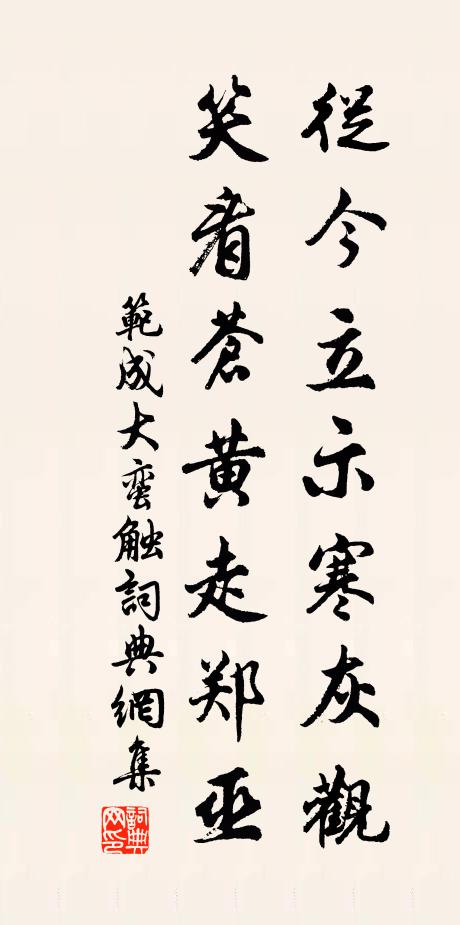 從今立示寒灰觀
笑看蒼黄走郑巫
範成大蛮触詞典網集
詞典网印